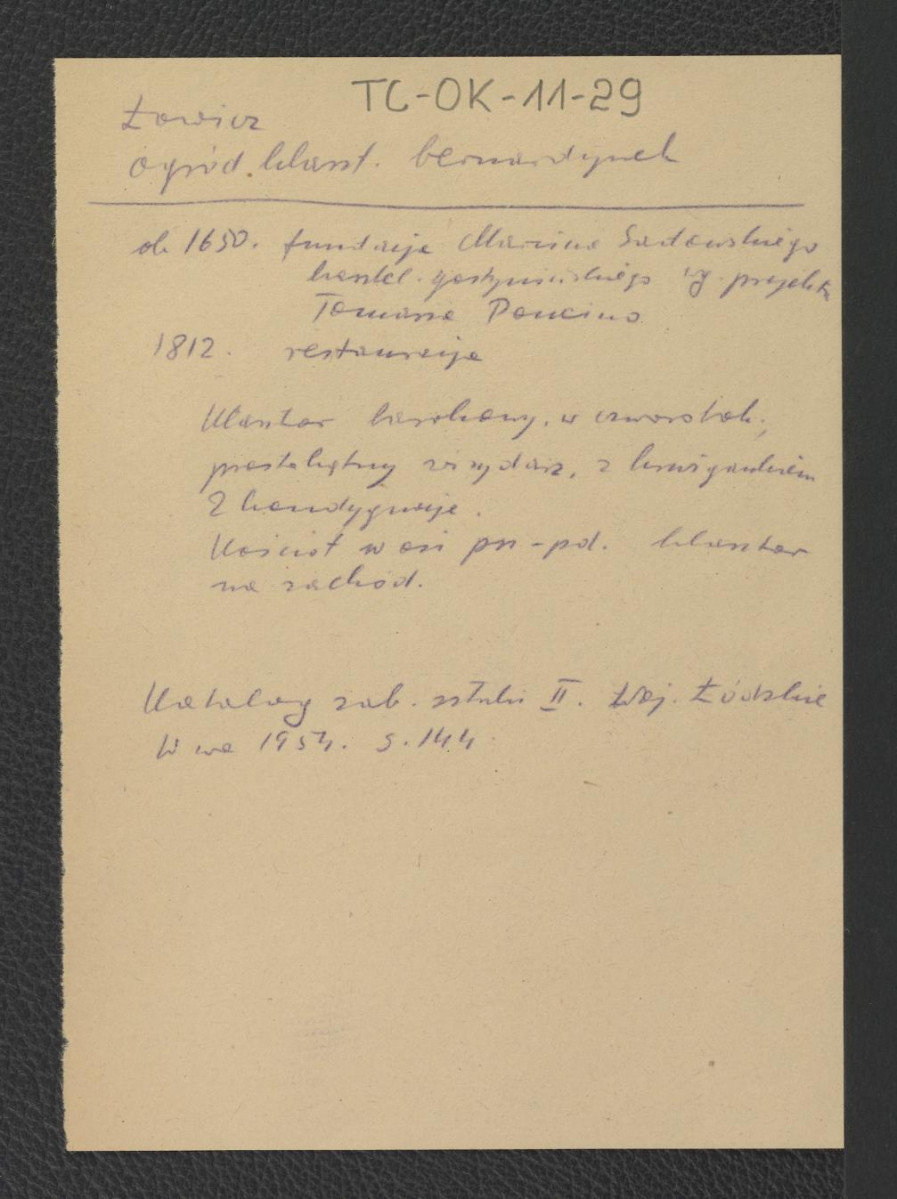 TC-OK-11-29
Łowicz
ogród klaszt. bernardynek
ok 1650. fundacja Marcina Sadowskiego
kasztel. gostynińskiego wg. projektu
Tomasza Poncino
1812. restauracja
Klasztor barokowy, w czworobok,
prostokątny wirydarz, z krużgankiem
2 kondygnacje.
Kościół w osi pn-pd. klasztor
na zachód.
Katalog zab. sztuki II. Woj. Łódzkie
W wa 1954. s. 144